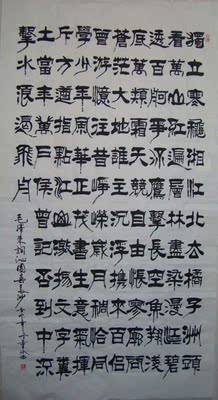 獨立寒秋湘江北去橘子洲頭
看萬山紅遍層林盡染漫江碧
透百舸爭流鷹擊長空魚翔淺
底萬類霜天競自由悵寥廓問
蒼茫大地誰主沉浮攜來百侶
曾游憶往昔崢嶸歲月稠恰同
學少年風華正茂書生意氣揮
斥方遒指點江山激揚文字糞
土當年萬戶侯曾記否到中流
擊水浪遏飛舟
毛澤東詞沁園春長沙